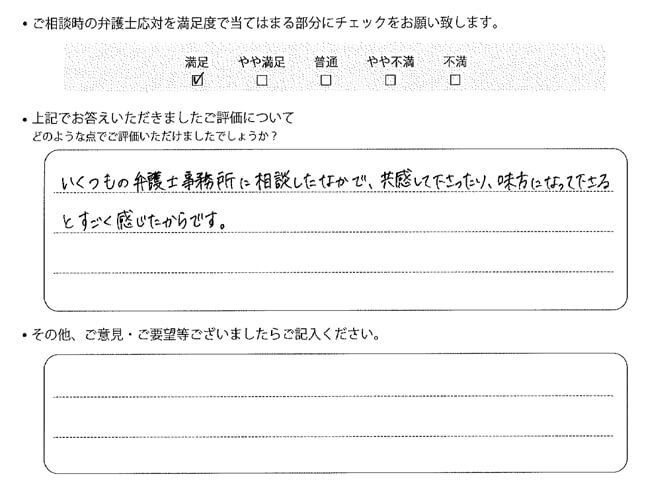 ・ご相談時の弁護士応対を満足度で当てはまる部分にチェックをお願い致します。
満足 やや満足 普通 やや不満 不満
☑ ☐ ☐ ☐ ☐
・上記でお答えいただきましたご評価について
どのような点でご評価いただけましたでしょうか？
いくつもの弁護士事務所に相談したなかで、共感して下さったり、味方になって下さる
とすごく感じたからです。
・その他、ご意見・ご要望等ございましたらご記入ください。